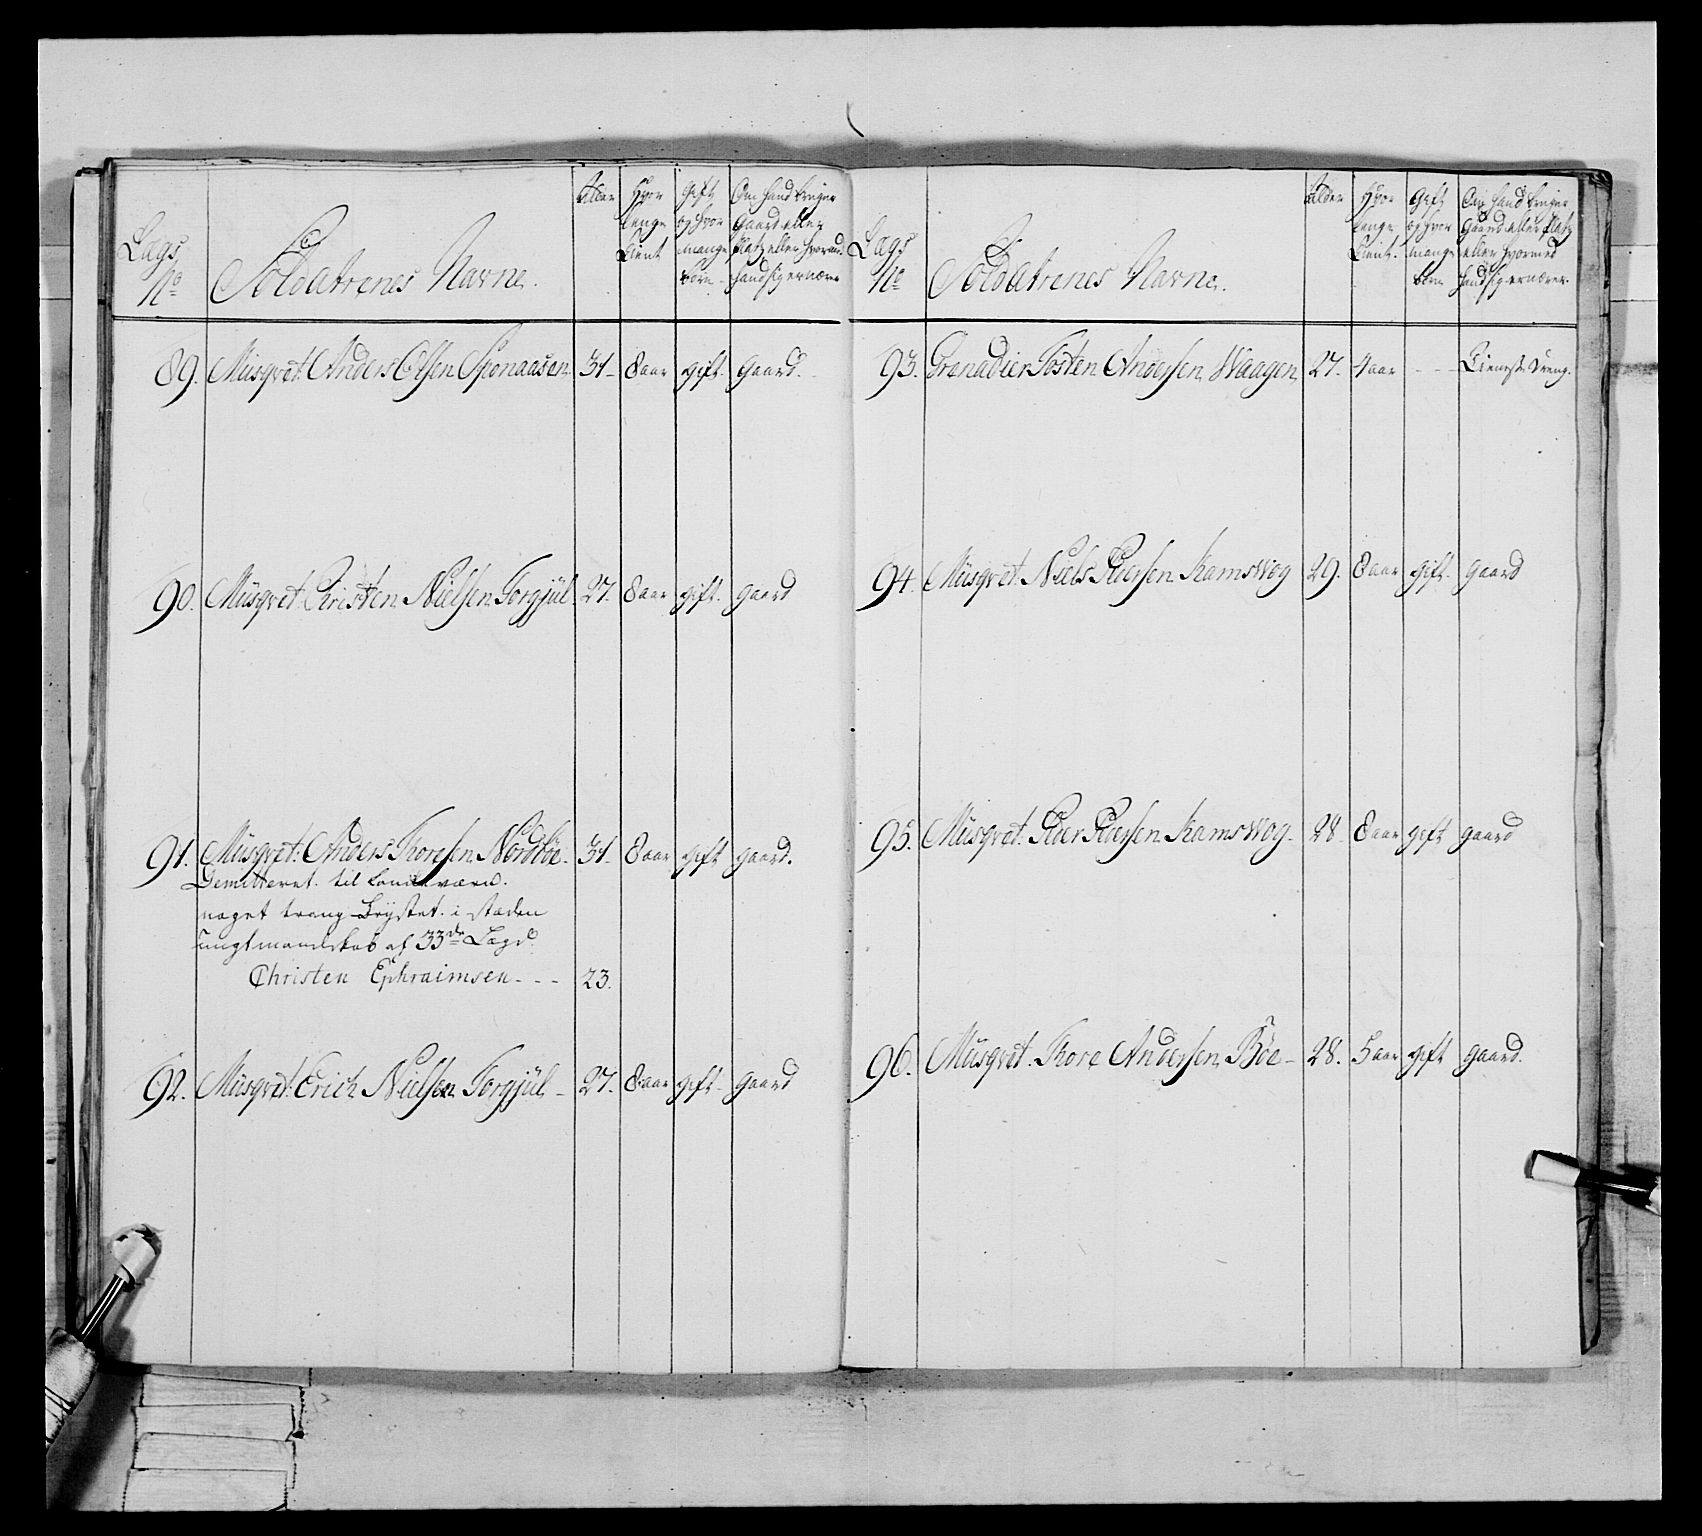 Lægs No
Soldaternes Navne.
Alder
Hvor længe tient
Gift og hvor mange børn
Om hand bruger Gaard eller Platz eller hvorved hand sig ernærer
89. Musqvet. Anders Olsen Sponaasen 31 8 aar gift. gaard.
90. Musqvet. Christen Nielsen Torgjul 27. 8 aar gift. gaard
91. Musqvet. Anders Thoresen Nordbøe. 31 8 aar gift gaard.
Demitteret. til Landeværn.
noget trang Brystet. i staden
ungtmandskab af 33de Lægd
Christen Ephraimsen - - - 23.
92. Musqvet. Erich Nielsen Torgjul - 27. 8 aar gift. gaard
Lægs No
Soldaternes Navne.
Alder
Hvor længe tient.
Gift og hvor mange børn
Om hand bruger Gaard eller Platz eller hvormed hand sig ernærer.
93. Granadier Tosten Andersen Waagen 27. 4 aar - - - Tieneste Dreng.
94. Musqvet. Niels Pedersen Ramswog 29. 8 aar gift. gaard
95. Musqvet. Peder Pedersen Ramswog - 28 8 aar gift gaard
96. Musqvet. Thore Andersen Bøe - 28. 5 aar gift gaard.